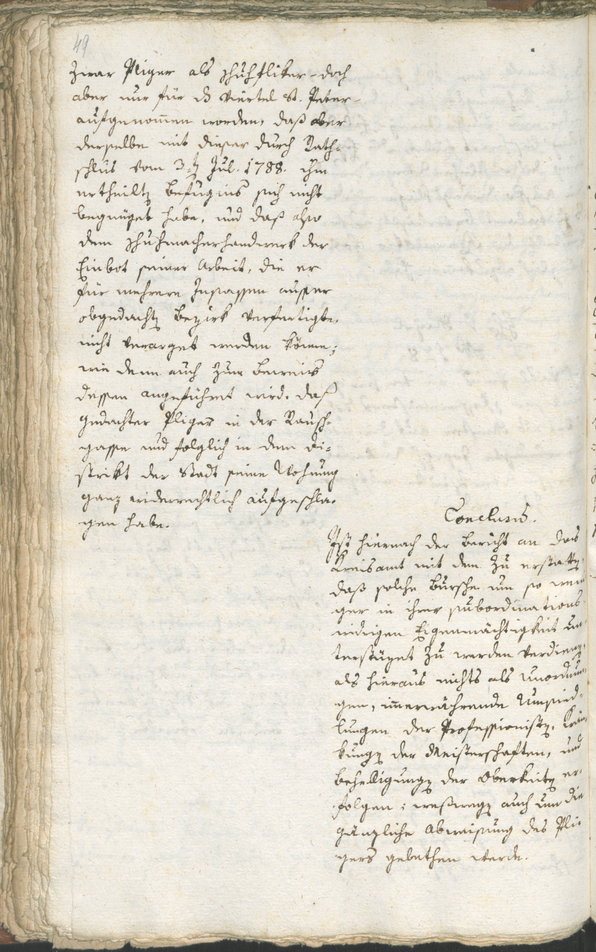 49
Zwar Pliger als Schuhflicker – doch
aber nur für das Viertel St. Peter –
aufgenom̄en worden, daß aber
derselbe mit dieser durch Rath-
schlus vom 3ten Jul. 1788. ihm
ertheiltn Befugnis sich nicht
begnüget habe, und daß also
dem Schuhmacherhandwerk der
Einbot seiner Arbeit, die er
für mehrere Insassen ausser
obgedachtn Bezirk verfertigte,
nicht verarget werden könne;
wie denn auch zum Beweis
dessen angeführet wird, daß
gedachter Pliger in der Rausch-
gasse und folglich in dem Di-
strikt der Stadt seine Wohnung
ganz widerrechtlich aufgeschla-
gen habe.
Conclusum.
Ist hiernach der Bericht an das
Kreisamt mit dem zu erstatten,
daß solche Bursche um so weni
ger in ihrer subordinations
widrigen Eigenmächtigkeit un
terstützet zu werden verdienen,
als hieraus nichts als Unordnun
gen, im̄erwährende
der Professionistn, Krän
kungn der Meisterschaften, und
Behelligungn der Oberkeitn er-
folgen; weßwegn auch um die
gänzliche Abweisung des Pli
gers gebethen werde.